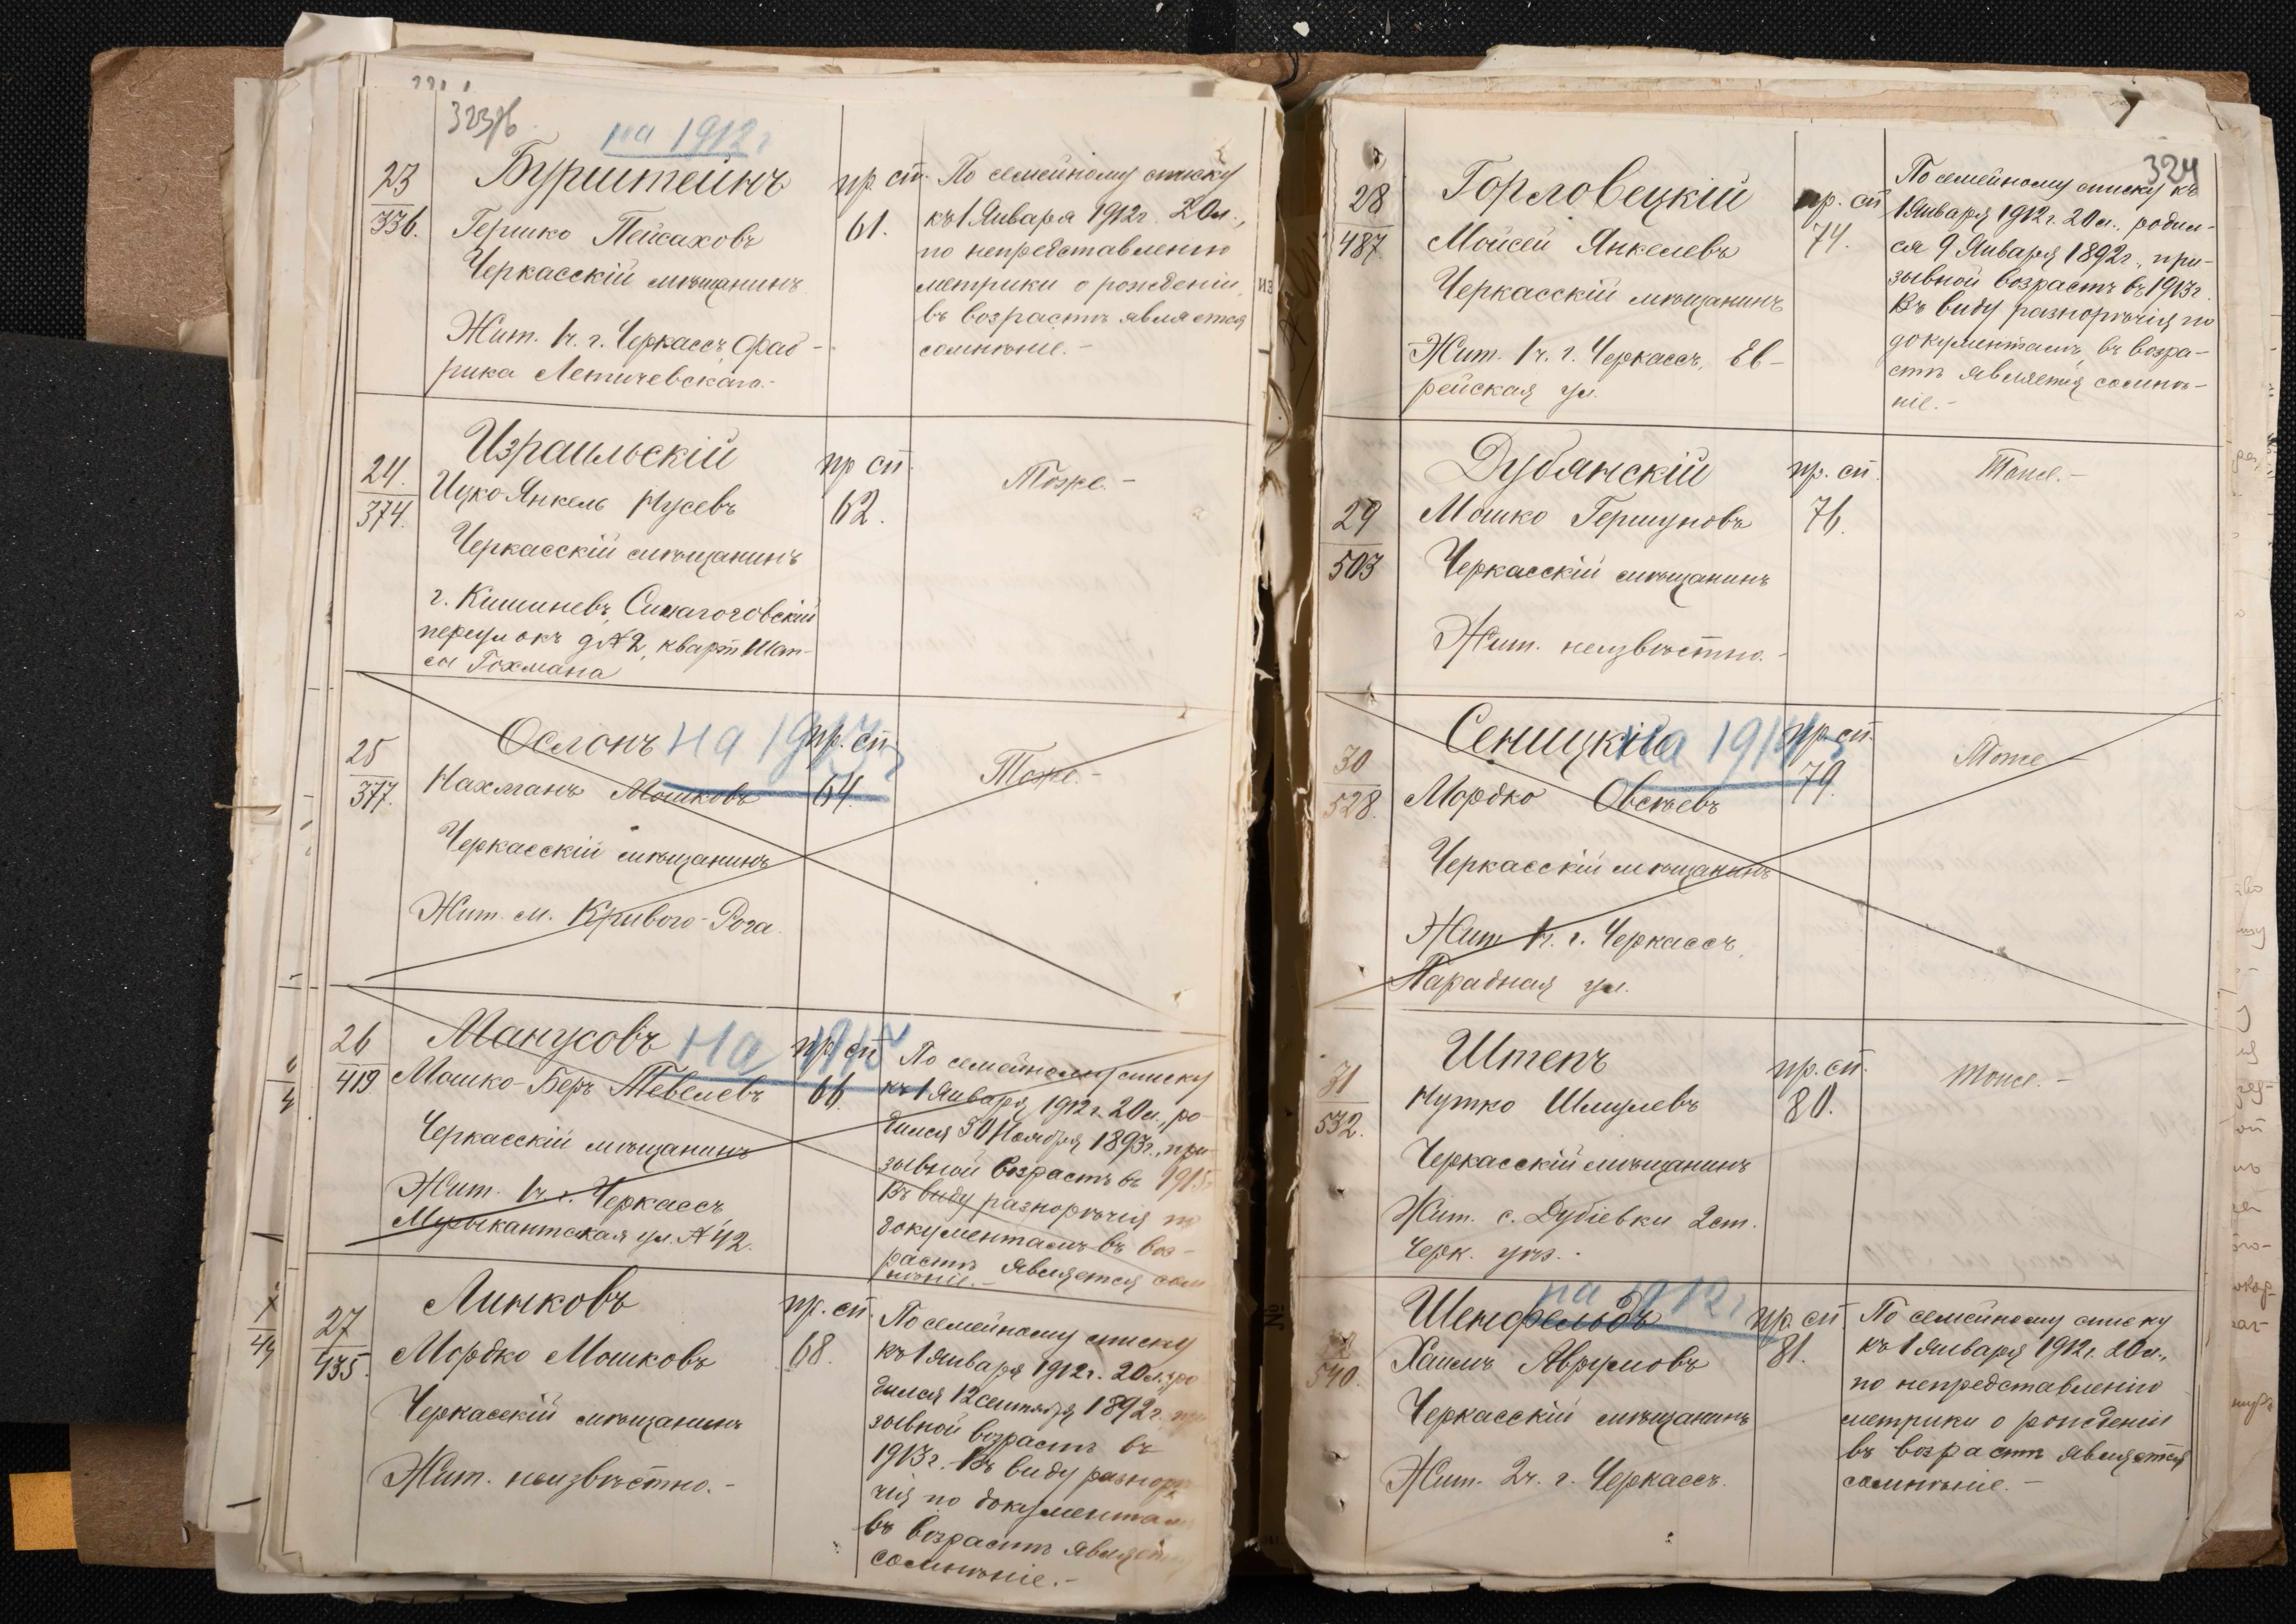 323/б
на 1912 г
23
336.
Бурштейнъ
Гершко Пейсаховъ
Черкасскій мѣщанинъ
Жит. 1 ч. г. Черкассъ, фаб-
рика Летичевскаго.-
пр. сп.
61.
По семейному списку
къ 1 Января 1912 г. 20 л.,
по непредставленію
метрики о рожденіи,
въ возрастѣ является
сомнѣніе.-
24.
374.
Израильскій
Ицко-Янкель Нусевъ
Черкасскій мѣщанинъ
г. Кишиневъ, Синагоговскій
переулокъ д № 2, кварт Шап-
сы Гохмана
пр сп.
62.
Тоже.-
25
377.
Ослонъ
на 1913 г
Нахманъ Мошковъ
Черкасскій мѣщанинъ
Жит. м. Кривого-Рога
пр. сп.
64.
Тоже.-
26
419.
Манусовъ
на 1915
Мошко-Беръ Тевелевъ
Черкасскій мѣщанинъ
Жит. 1 ч. г. Черкассъ
Музыкантская ул. № 42.
пр. сп
66.
По семейному списку
къ 1 Января 1912 г. 20 л., ро-
дился 30 Ноября 1893 г., при-
зывной возрастъ въ 1915
Въ виду разнорѣчія по
документамъ въ воз-
растѣ является сом
нѣніе.-
27
435.
Линковъ
Мордко Мошковъ
Черкасскій мѣщанинъ
Жит. неизвѣстно.-
пр. сп.
68.
По семейному списку
къ 1 Января 1912 г. 20 л., ро
дился 12 Сентября 1892 г. при
зывной возрастъ въ
1913 г.- Въ виду разнорѣ
чія по документам
въ возрастѣ является
сомнѣніе.-
324
28
487.
Горловецкій
Мойсей Янкелевъ
Черкасскій мѣщанинъ
Жит. 1 ч. г. Черкассъ, Ев-
рейская ул.
пр. сп
74.
По семейному списку къ
1 Января 1912 г. 20 л., родил-
ся 9 Января 1892 г., при-
зывной возрастъ въ 1913 г.
Въ виду разнорѣчія по
документамъ въ возра-
стѣ является сомнѣ-
ніе.-
29
503
Дубянскій
Мошко Гершуновъ
Черкасскій мѣщанинъ
Жит. неизвѣстно.-
пр. сп.
76.
Тоже.-
30
528.
Сеницкій
на 1914
Мордко Овсѣевъ
Черкасскій мѣщанинъ
Жит 1 ч. г. Черкассъ,
Парадная ул.
пр. сп.
79.
Тоже
31
532.
Штепъ
Нутко Шмулевъ
Черкасскій мѣщанинъ
Жит. с. Дубіевки 2 ст.
Черк. уѣз.
пр. сп.
80.
Тоже.-
540.
на 1912 г
Шенфельдъ
Хаимъ Аврумовъ
Черкасскій мѣщанинъ
Жит. 2 ч. г. Черкассъ.
пр. сп.
81.
По семейному списку
къ 1 Января 1912 г. 20 л.,
по непредставленію
метрики о рожденіи
въ возрастѣ является
сомнѣніе.-